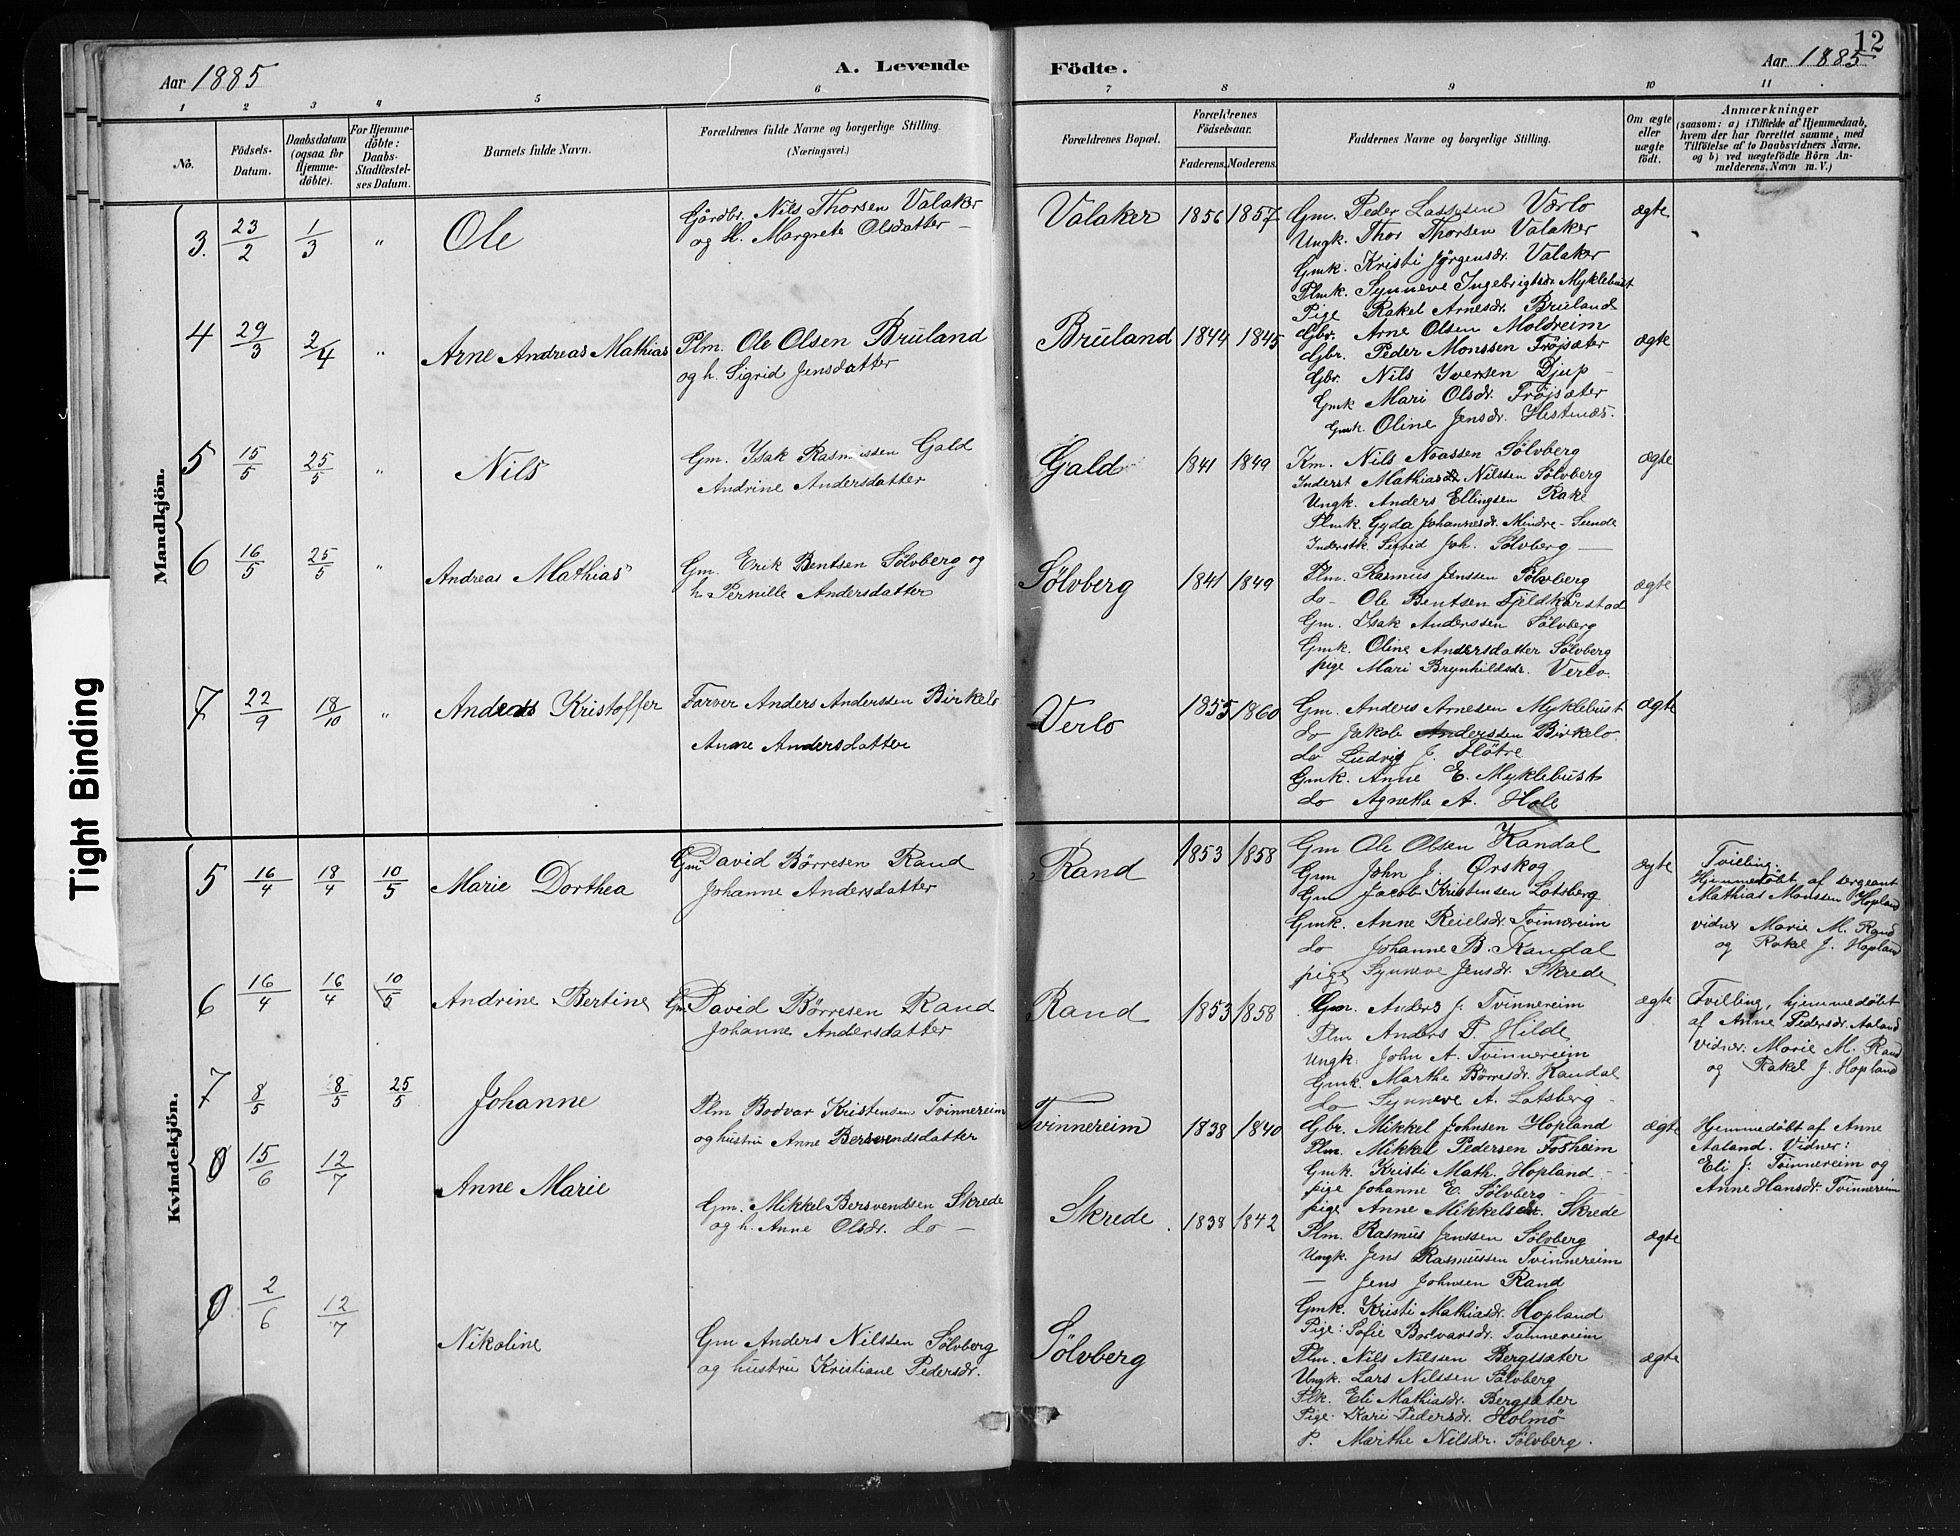 12
Aar 1885
A. Levende Födte.
Aar 1885
1 2 3 4 5 6 7 8 9 10 11
No.
Födsels-Datum.
Daabsdatum (ogsaa for Hjemme-döbte).
For Hjemme-döbte: Daabs-Stadfæstel-ses Datum.
Barnets fulde Navn.
Forældrenes fulde Navne og borgerlige Stilling.
(Næringsvei.)
Forældrenes Bopæl.
Forældrenes Födselsaar.
Faderens. Moderens.
Faddernes Navne og borgerlige Stilling.
Om ægte eller uægte födt.
Anmærkninger
(saasom: a) i Tilfælde af Hjemmedaab,
hvem der har forrettet samme, med
Tilföielse af to Daabsvidners Navne.
og b) ved uægtefödte Börn An-
melderens Navn m.V.)
Mandkjön.
3. 23/2 1/3 " Ole
Gårdbr. Nils Thorsen Valaker
og h. Margrete Olsdatter –
Valaker 1856 1857
Gm. Peder Lassesen Værlo
Ungk. Thor Thorsen Valaker
Gmk. Kristi Jørgensdr. Valaker
Plmk. Synneve Ingebrigtsdr. Myklebust
Pige Rakel Arnesdr. Bruland
ægte
4 29/3 2/4 " Arne Andreas Mathias
Plm. Ole Olsen Bruland
og h. Sigrid Jensdatter
Bruland 1844 1845
Gbr. Arne Olsen Moldreim
Gbr. Peder Monssen Frøjsæter
Gbr. Nils Yversen Djup –
Gmk Mari Olsdr. Frøjsæter
Gmk. Oline Jensdr. Hestnæs.
ægte
5 15/5 25/5 " Nils
Gm. Ysak Rasmussen Gald
Andrine Andersdatter
Gald 1841 1849
Km. Nils Noassen Sølvberg
Inderst Mathias Nilssen Sølvberg
Ungk. Anders Ellingsen Rake
Plmk. Gyda Johannesdr. Mindre-Sunde
Inderstk. Sigrid Joh. Sølvberg –
ægte
6 16/5 25/5 " Andreas Mathias
Gm. Erik Bentsen Sølvberg og
h. Pernille Andersdatter
Sølvberg 1841 1849
Plm. Rasmus Jenssen Sølvberg
do – Ole Bentsen Fjeldkårstad
Gm. Isak Anderssen Sølvberg
Gmk. Oline Andersdatter Sølvberg
pige Mari Brynhildsdr. Verlo.
ægte
7 22/9 18/10 " Anders Kristoffer
Farver Anders Anderssen Birkelo
Anne Andersdatter
Verlo 1855 1860
Gm. Anders Arnesen Myklebust
do Jakob Anderssen Birkelo.
do Ludvig J. Fløtre
Gmk. Anne E. Myklebust
do Agnethe A. Hole
ægte
Kvindekjön.
5 16/4 18/4 10/5 Marie Dorthea
Gm David Børresen Rand
Johanne Andersdatter
Rand 1853 1858
Gm Ole Olsen Kandal
Gm John J. Ørskog
Gm Jacob Kristensen Lotsberg
Gmk. Anne Reielsdr. Tvinnereim
do Johanne B. Kandal
pige Synneve Jensdr. Skrede
ægte
Tvilling.
Hjemmedøbt af sergeant
Mathias Monssen Hopland
vidner Marie M. Rand
og Rakel J. Hopland
6 16/4 16/4 10/5 Andrine Bertine
Gm David Børresen Rand
Johanne Andersdatter
Rand 1853 1858
Gm. Anders J. Tvinnereim
Plm Anders P. Hilde
Ungk. John A. Tvinnereim
Gmk Marthe Børresdr. Kandal
do Synneve A. Lotsberg –
ægte
Tvilling, hjemmedøbt
af Anne Pedersdr. Aaland
vidner: Marie M. Rand
og Rakel J. Hopland
7 8/5 8/5 25/5 Johanne
Plm Bodvar Kristensen Tvinnereim
og hustru Anne Bersvendsdatter
Tvinnereim 1838 1840
Gbr. Mikkel Johnsen Hopland
Plm. Mikkel Pedersen Fosheim
Gmk. Kristi Math. Hopland –
pige Johanne E. Sølvberg –
pige Anne Mikkelsdr. Skrede
ægte
Hjemmedøbt af Anne
Aaland. Vidner:
Eli J. Tvinnereim og
Anne Hansdr. Tvinnereim
8 15/6 12/7 Anne Marie
Gm. Mikkel Bersvendsen Skrede
og h. Anne Olsdr. do –
Skrede 1838 1842
Plm. Rasmus Jenssen Sølvberg
Ungk. Jens Rasmussen Tvinnereim
— Jens Johnsen Rand
Gmk. Kristi Mathiasdr. Hopland
Pige: Sofie Bodvarsdr. Tvinnereim
ægte
9 2/6 12/7 Nikoline
Gm Anders Nilssen Sølvberg
og hustru Kristiane Pedersdr.
Sølvberg
Plm. Nils Nilssen Bergsæter
Ungk. Lars Nilssen Sølvberg
Plk. Eli Mathiasdr. Bergsæter
Pige. Kari Pedersdr. Holmø
P. Marthe Nilsdr. Sølvberg.
ægte
Tight Binding